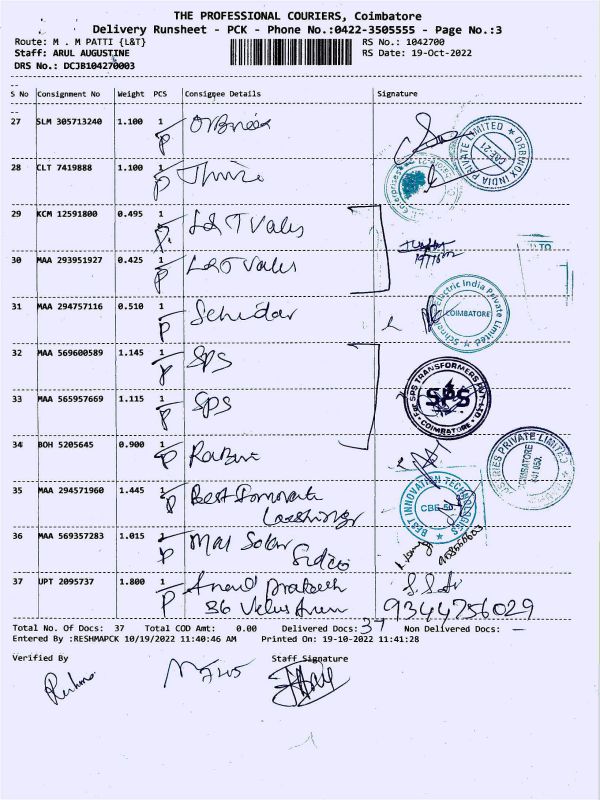 THE PROFESSIONAL COURIERS, Coimbatore
Delivery Runsheet - PCK - Phone No.:0422-3505555 - Page No.:3
Route: M . M PATTI {L&T} RS No.: 1042700
Staff: ARUL AUGUSTINE RS Date: 19-Oct-2022
DRS No.: DCJB104270003
S No Consignment No Weight PCS Consignee Details Signature
27 SLM 305713240 1.100 1
ORBINOX INDIA PRIVATE LIMITED
CBE-21
28 CLT 7419888 1.100 1
29 KCM 12591800 0.495 1 L&T Valves
30 MAA 293951927 0.425 1 L&T Valves
31 MAA 294757116 0.510 1
Electric India Private Limited
COIMBATORE
32 MAA 569600589 1.145 1 SPS
33 MAA 565957669 1.115 1 SPS
SPS TRANSFORMERS PVT LTD
SPS
COIMBATORE
34 BOH 5205645 0.900 1
PRIVATE LIMITED
COIMBATORE
35 MAA 294571960 1.445 Best
BEST INNOVATION TECHNOLOGIES
CBE-50
36 MAA 569357283 1.015 Solar
37 UPT 2095737 1.800 1 Anand Prakash
36 9344756029
Total No. Of Docs: 37 Total COD Amt: 0.00 Delivered Docs: 37 Non Delivered Docs: –
Entered By :RESHMAPCK 10/19/2022 11:40:46 AM Printed On: 19-10-2022 11:41:28
Verified By Staff Signature